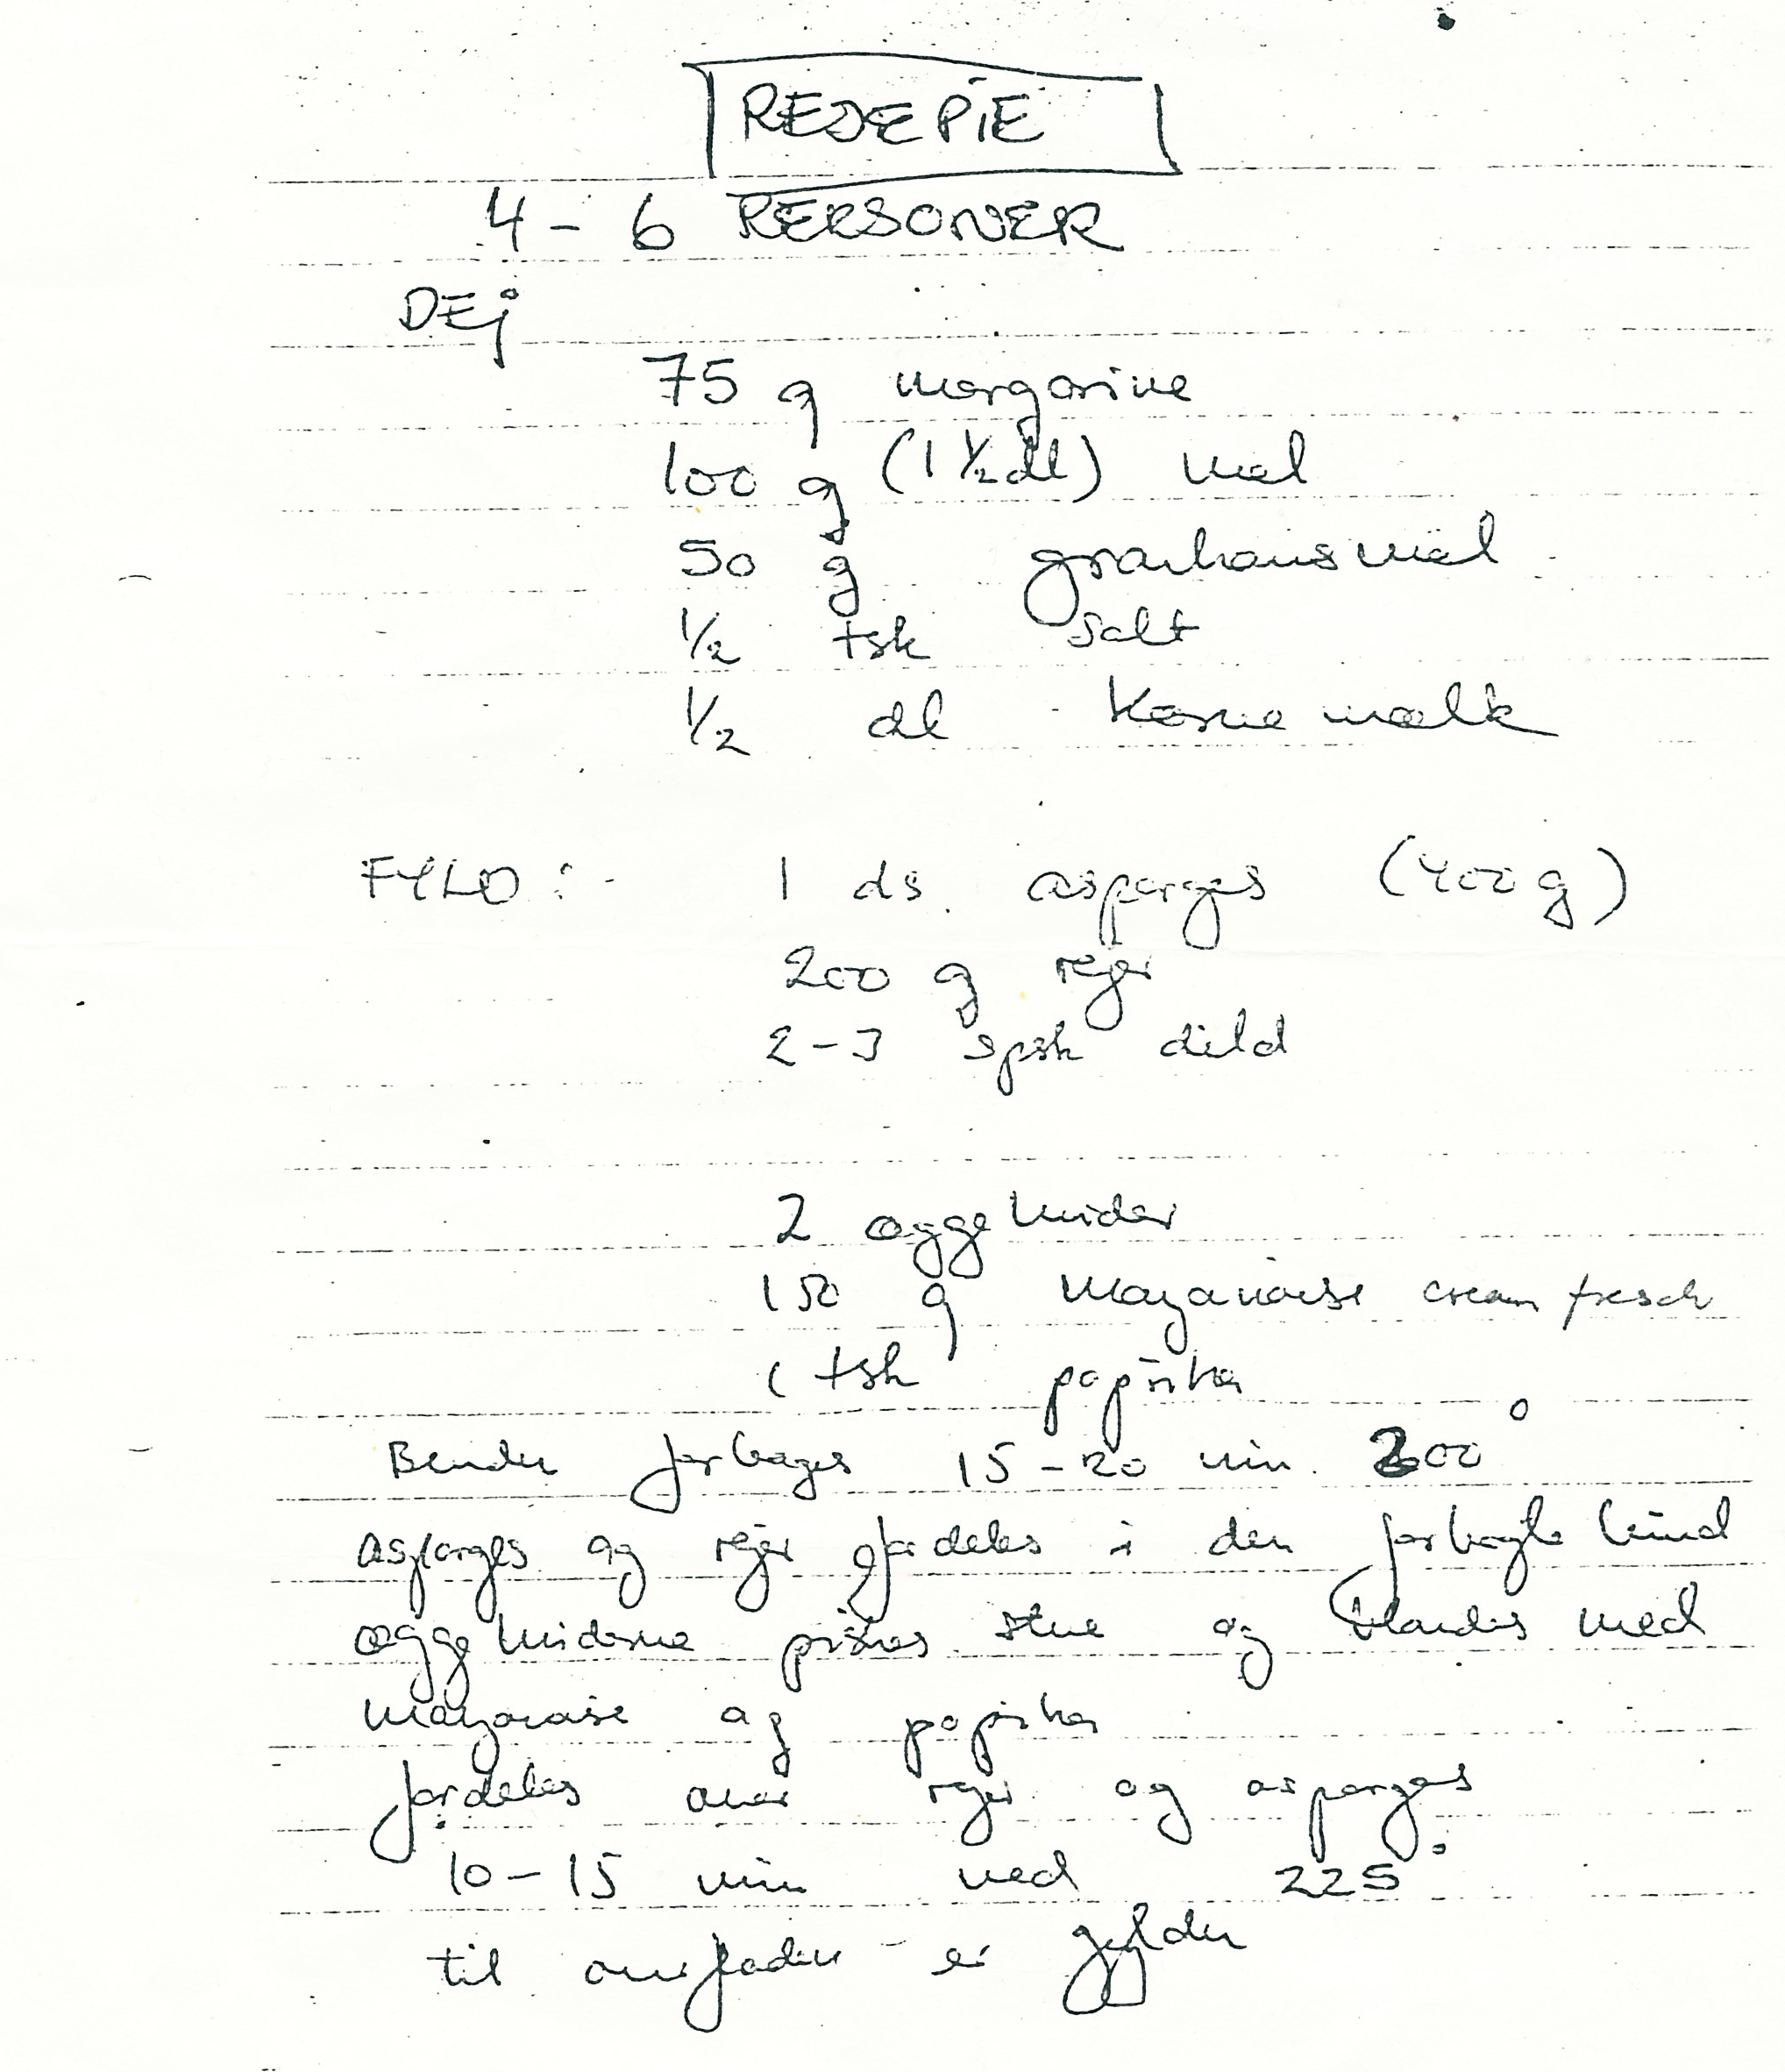 REJEPIE
4 - 6 PERSONER
DEj
75 g margarine
100 g (1 1/2 dl) mel
50 g grahamsmel
1/2 tsk salt
1/2 dl kærnemælk
FYLD :-
1 ds. asparges (400 g)
200 g rejer
2-3 spsk dild
2 æggehvider
150 g mayanaise cream fresch
1 tsk paprika
Bunden forbages 15-20 min. 200°
asparges og rejer fordeles i den forbagte bund
æggehviderne piskes stive og blandes med
mayonaise og paprika
fordeles over rejer og asparges
10-15 min ved 225°
til overfladen er gylden